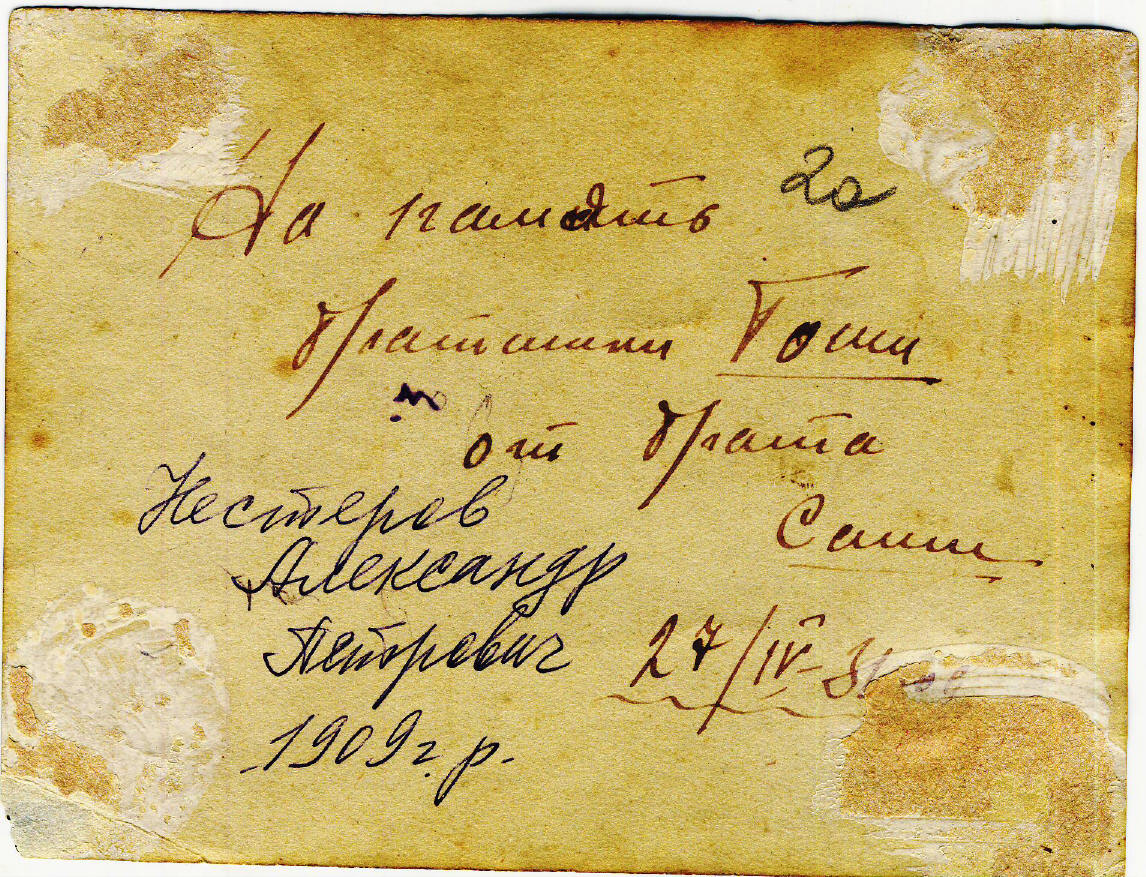 На память 20
братишки Гоши
от брата
Саши
Нестеров
Александр
Петрович
1909 г. р.
27/IV-31